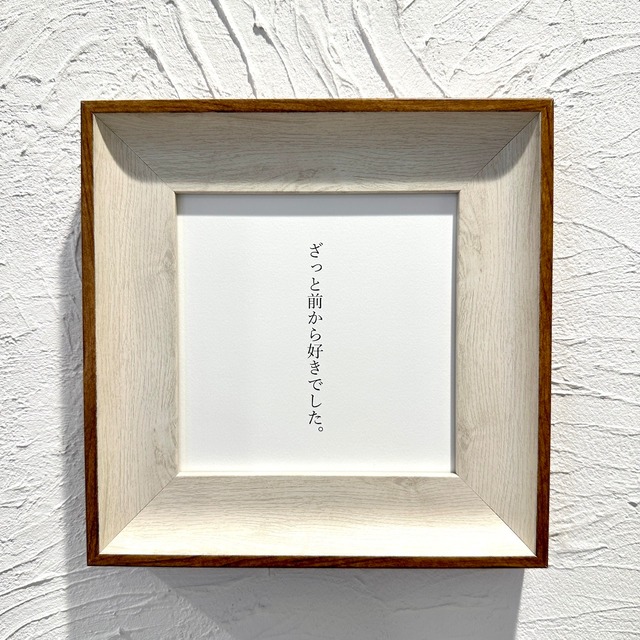 ざっと前から好きでした。